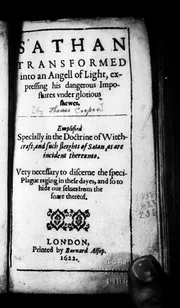 SATHAN
TRANSFORMED
into an Angell of Light, ex-
pressing his dangerous Impo-
stures vnder glorious
shewes.
by Thomas Cooper
Emplified
Specially in the Doctrine of Witch-
craft, and such sleights of Satan, as are
incident thereunto.
Very necessary to discerne the speci-
Plague raging in these dayes, and so to
hide our selues from the
snare thereof.
LONDON,
Printed by Barnard Alsop.
1622.